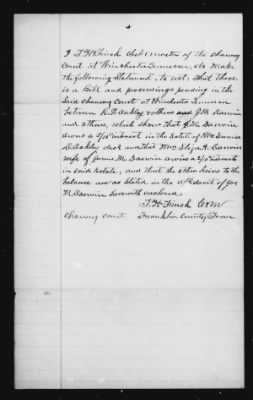 I T. H. Finch clerk & master of the Chancery
Court at Winchester Tennessee, do make
the following Statement, to wit: That there
is a Bill and proceedings pending in the
said Chancery Court at Winchester Tennessee
between R. F. Oakley & others and J. M. Darwin
and others, which show that J. M. Darwin
owns a interest in the Estate of
D Oakley decd and that Mrs Eliza A. Darwin
wife of James M. Darwin owns a interest
in said Estate, and that the other heirs to the
balance are as stated in the affidavit of Jas
M. Darwin herewith enclosed.
T. H. Finch C & M
Chancery Court. Franklin County, Tenn